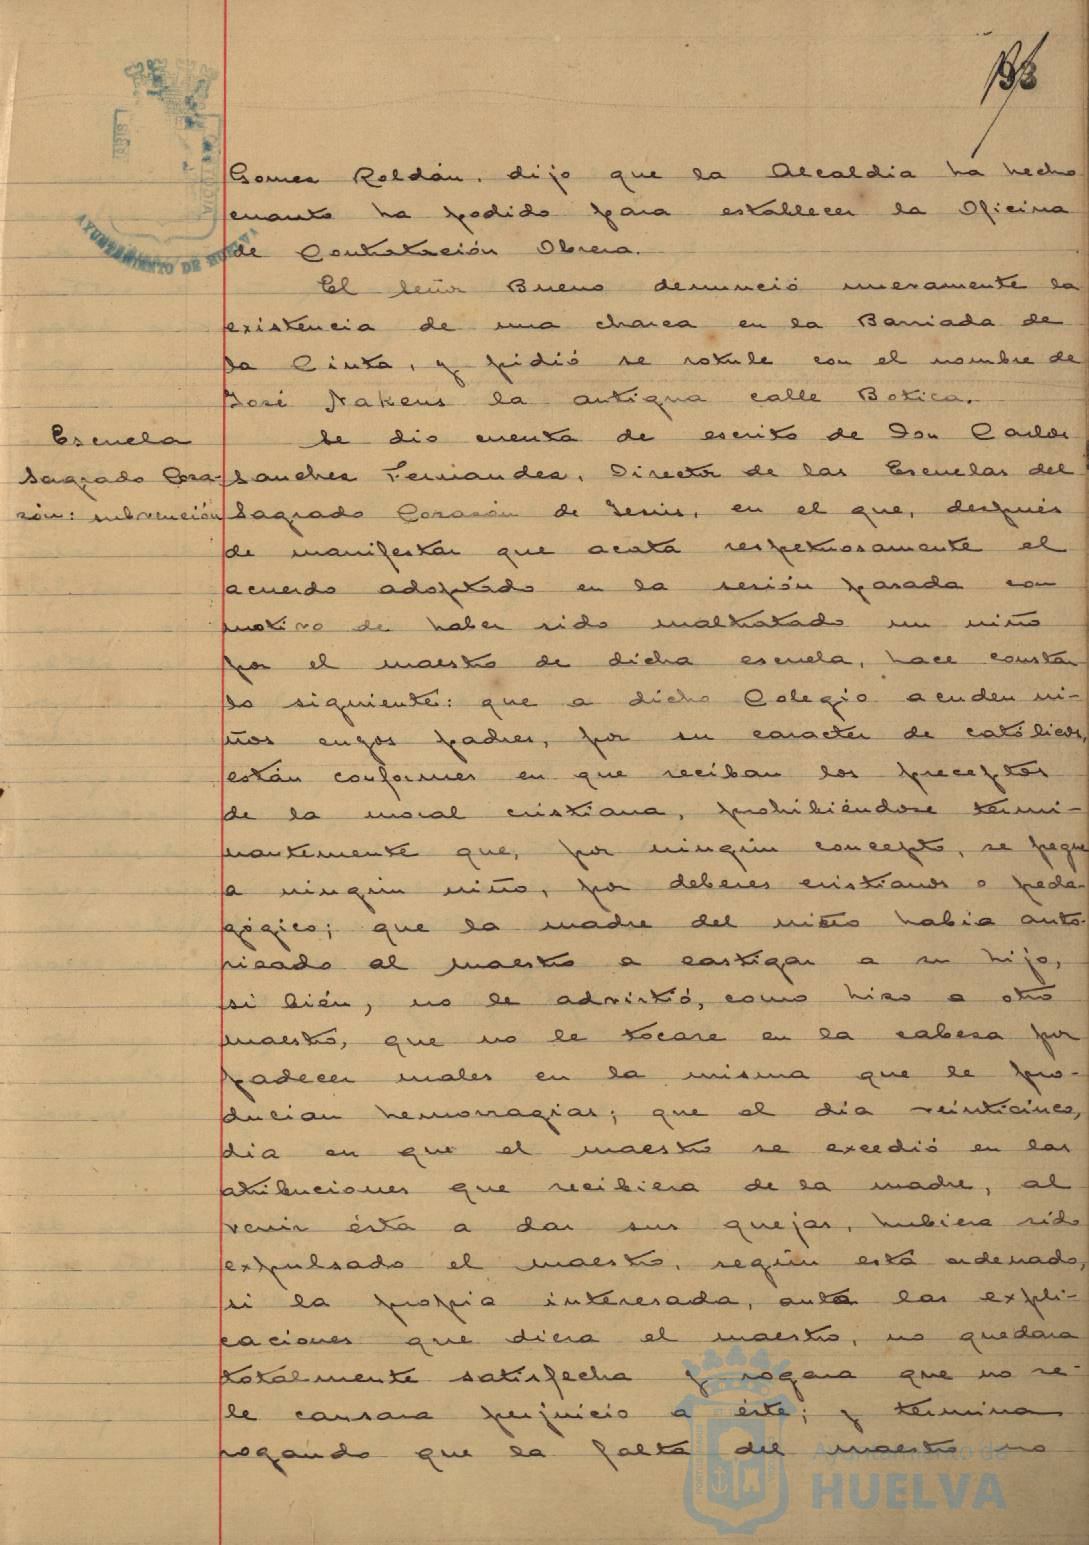 193
Gomez Roldán, dijo que la Alcaldia ha hecho
cuanto ha podido para establecer la Oficina
de Contratación Obrera.
El Señor Bueno denunció nuevamente la
existencia de una charca en la Barriada de
la Cinta, y pidió se rotule con el nombre de
José Nakens la antigua calle Botica.
Escuela
Sagrado Cora-
zón: subvención
Se dio cuenta de escrito de Don Carlos
Sanchez Fernandez, Director de las Escuelas del
Sagrado Corazón de Jesús, en el que, después
de manifestar que acata respetuosamente el
acuerdo adoptado en la sesión pasada con
motivo de haber sido maltratado un niño
por el maestro de dicha escuela, hace constar
lo siguiente: que a dicho Colegio acuden ni-
ños cuyos padres, por su caracter de católicos,
están conformes en que reciban los preceptos
de la moral cristiana, prohibiéndose termi-
nantemente que, por ningún concepto, se pegue
a ningún niño, por deberes cristianos o peda-
gógico; que la madre del niño habia auto-
rizado al maestro a castigar a su hijo,
si bién, no le advirtió, como hizo a otro
maestro, que no le tocase en la cabeza por
padecer males en la misma que le pro-
ducian hemorragias; que el dia veinticinco,
dia en que el maestro se excedió en las
atribuciones que recibiera de la madre, al
venir ésta a dar sus quejas, hubiera sido
expulsado el maestro, según está ordenado,
si la propia interesada, ante las expli-
caciones que diera el maestro, no quedara
totalmente satisfecha y rogara que no se
le causara perjuicio a éste; y termina
rogando que la falta del maestro no
AYUNTAMIENTO DE HUELVA
Ayuntamiento de
HUELVA